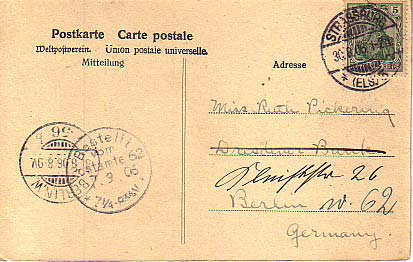 Postkarte Carte postale
Weltpostverein. Union postale universelle.
Mitteilung
Adresse
5 5
STRASSBURG
(ELS.)
Miss Ruth Pickering
Dresdener
26
Berlin W. 62
Germany.
Bestellt
vom
Postamte